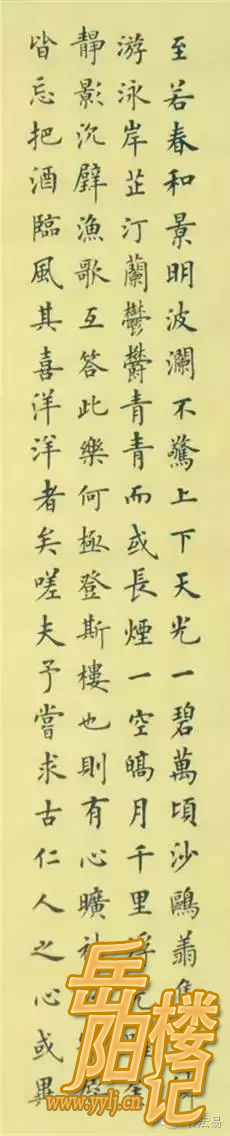 至若春和景明波瀾不驚上下天光一碧萬頃沙鷗翔集
游泳岸芷汀蘭鬱鬱青青而或長煙一空皜月千里浮光
靜影沉璧漁歌互答此樂何極登斯樓也則有心曠神
皆忘把酒臨風其喜洋洋者矣嗟夫予嘗求古仁人之心或異
岳阳楼记
www.yylj.cn
书法易